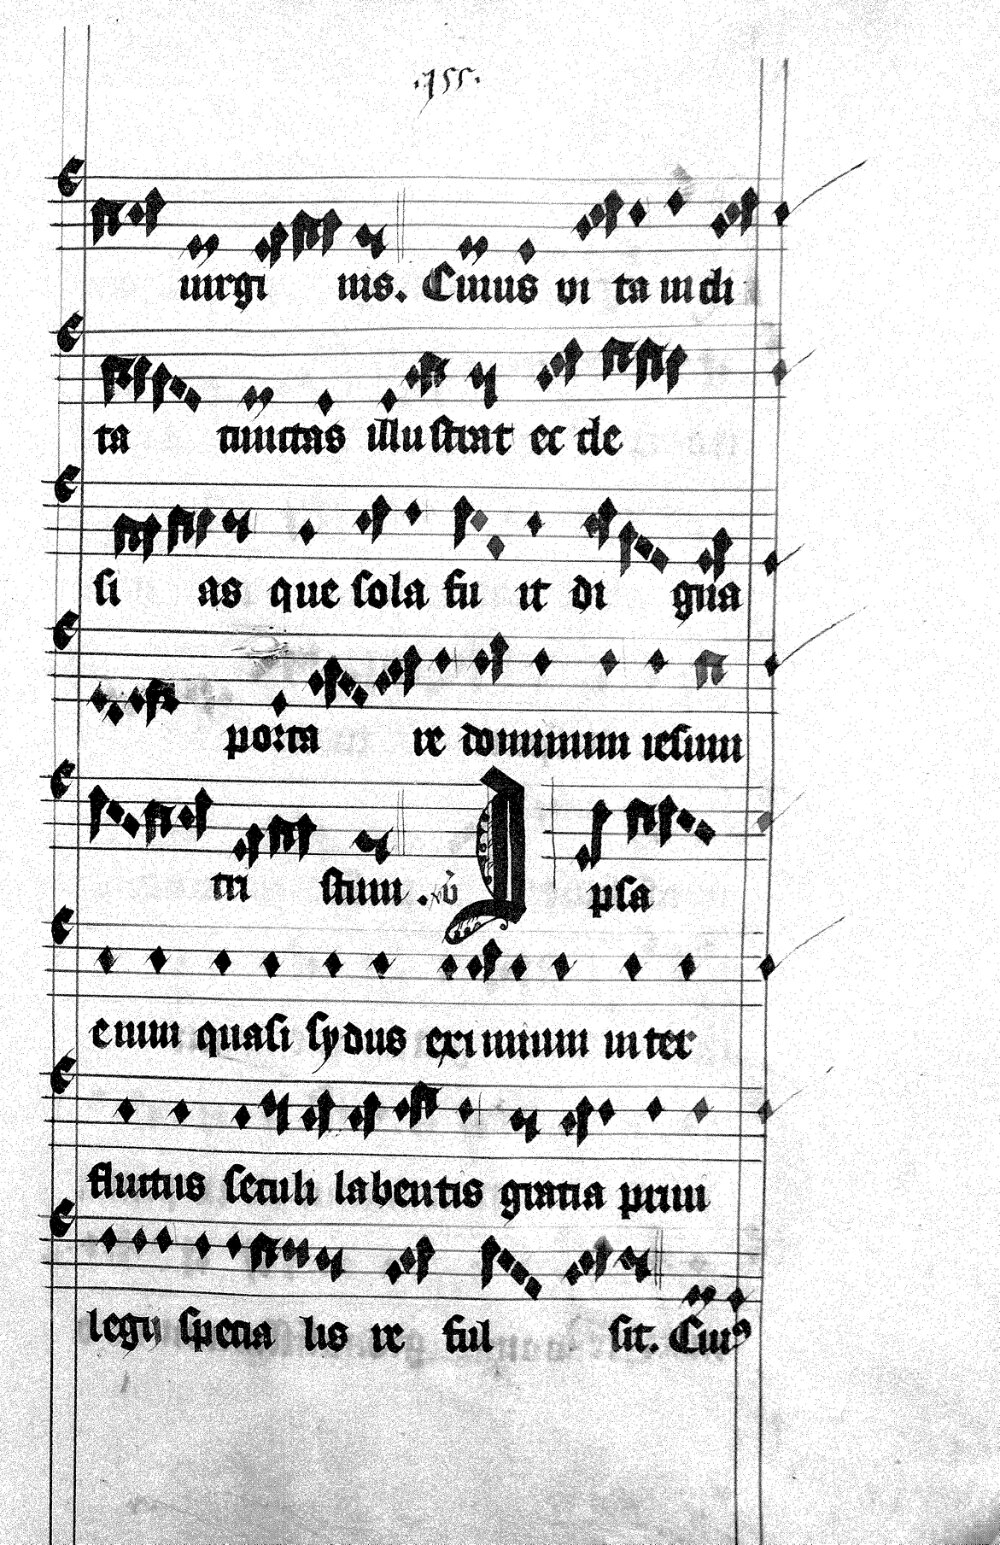 .155.
uirgi nis. Cuius ui ta incli
ta cunctas illustrat ec cle
si as que sola fu it di gna
porta re dominum iesum
cri stum. v̓ Ipsa
enim quasi sydus eximium inter
fluctus seculi labentis gratia priui
legii specia lis re ful sit. Cuiꝰ